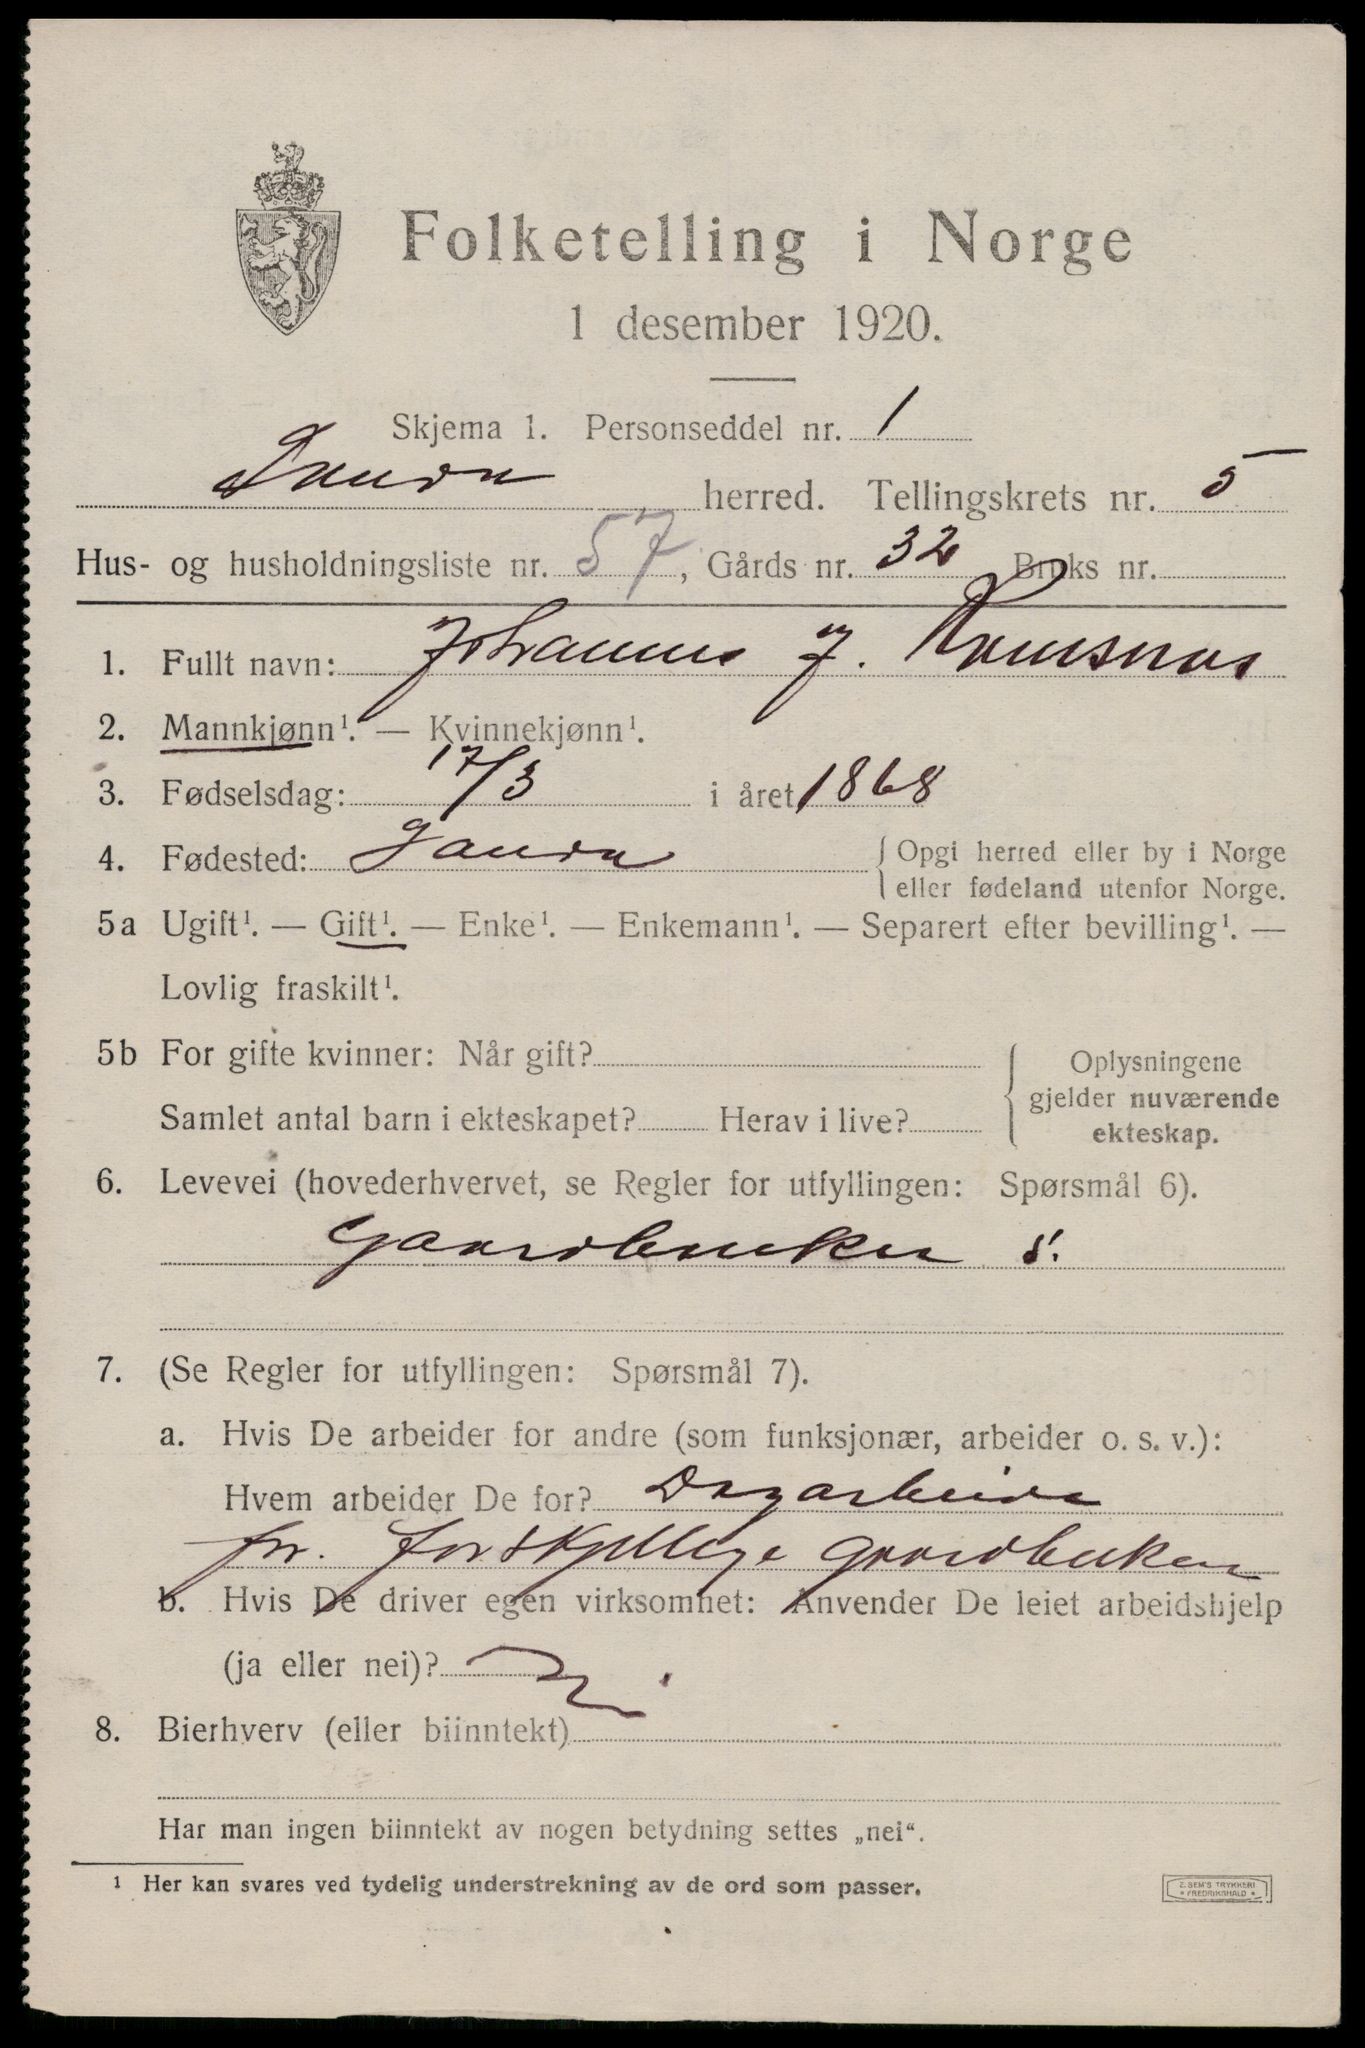 Folketelling i Norge
1 desember 1920.
Skjema 1. Personseddel nr. 1
Sauda herred. Tellingskrets nr. 5
Hus- og husholdningsliste nr. 57, Gårds nr. 32 Bruks nr.
1. Fullt navn: Johannes J.
2. Mannkjønn¹. — Kvinnekjønn¹.
3. Fødselsdag: 17/3 i året 1868
4. Fødested: Sauda { Opgi herred eller by i Norge
eller fødeland utenfor Norge.
5a Ugift¹. — Gift¹. — Enke¹. — Enkemann¹. — Separert efter bevilling¹. —
Lovlig fraskilt¹.
5b For gifte kvinner: Når gift? { Oplysningene
gjelder nuværende
Samlet antal barn i ekteskapet? Herav i live? ekteskap.
6. Levevei (hovederhvervet, se Regler for utfyllingen: Spørsmål 6).
Gaardbruker s.
7. (Se Regler for utfyllingen: Spørsmål 7).
a. Hvis De arbeider for andre (som funksjonær, arbeider o. s. v.):
Hvem arbeider De for? Dagarbeide
for. forskjellige gaardbruker
b. Hvis De driver egen virksomhet: Anvender De leiet arbeidshjelp
(ja eller nei)? nei
8. Bierhverv (eller biinntekt)
Har man ingen biinntekt av nogen betydning settes „nei“.
¹ Her kan svares ved tydelig understrekning av de ord som passer.
E. SEM'S TRYKKERI
* FREDRIKSHALD *